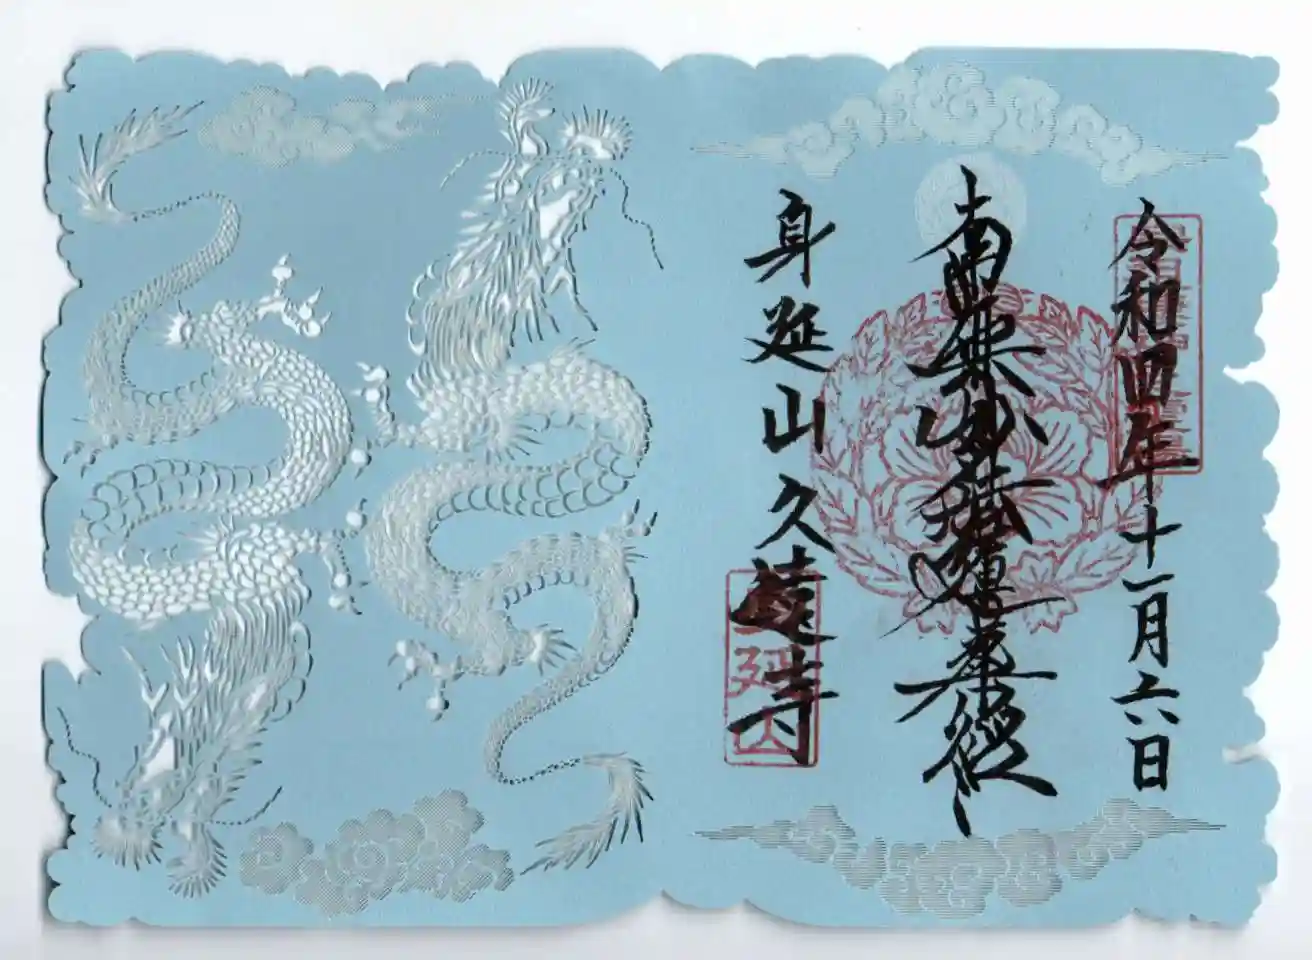 令和四年十一月六日
南無妙法蓮華経
身延山久遠寺